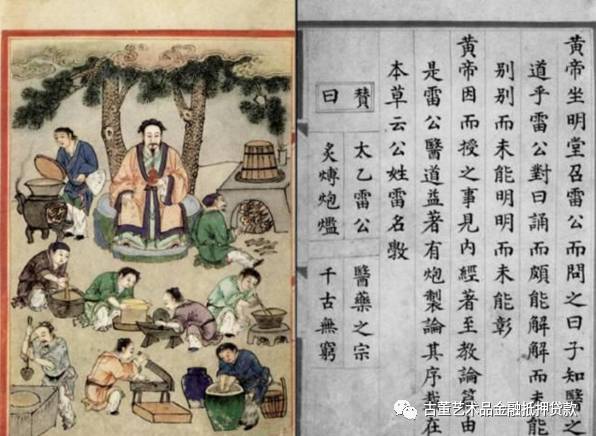 黄帝坐明堂召雷公而問之曰子知醫之
道乎雷公對曰誦而頗能解解而未能
別別而未能明明而未能彰
黄帝因而授之事見内經著至教論篇由
是雷公醫道益著有炮製論其序載在
本草云公姓雷名斆
贊曰
太乙雷公 醫藥之宗
炙煿炮爁 千古無窮
古董艺术品金融抵押贷款